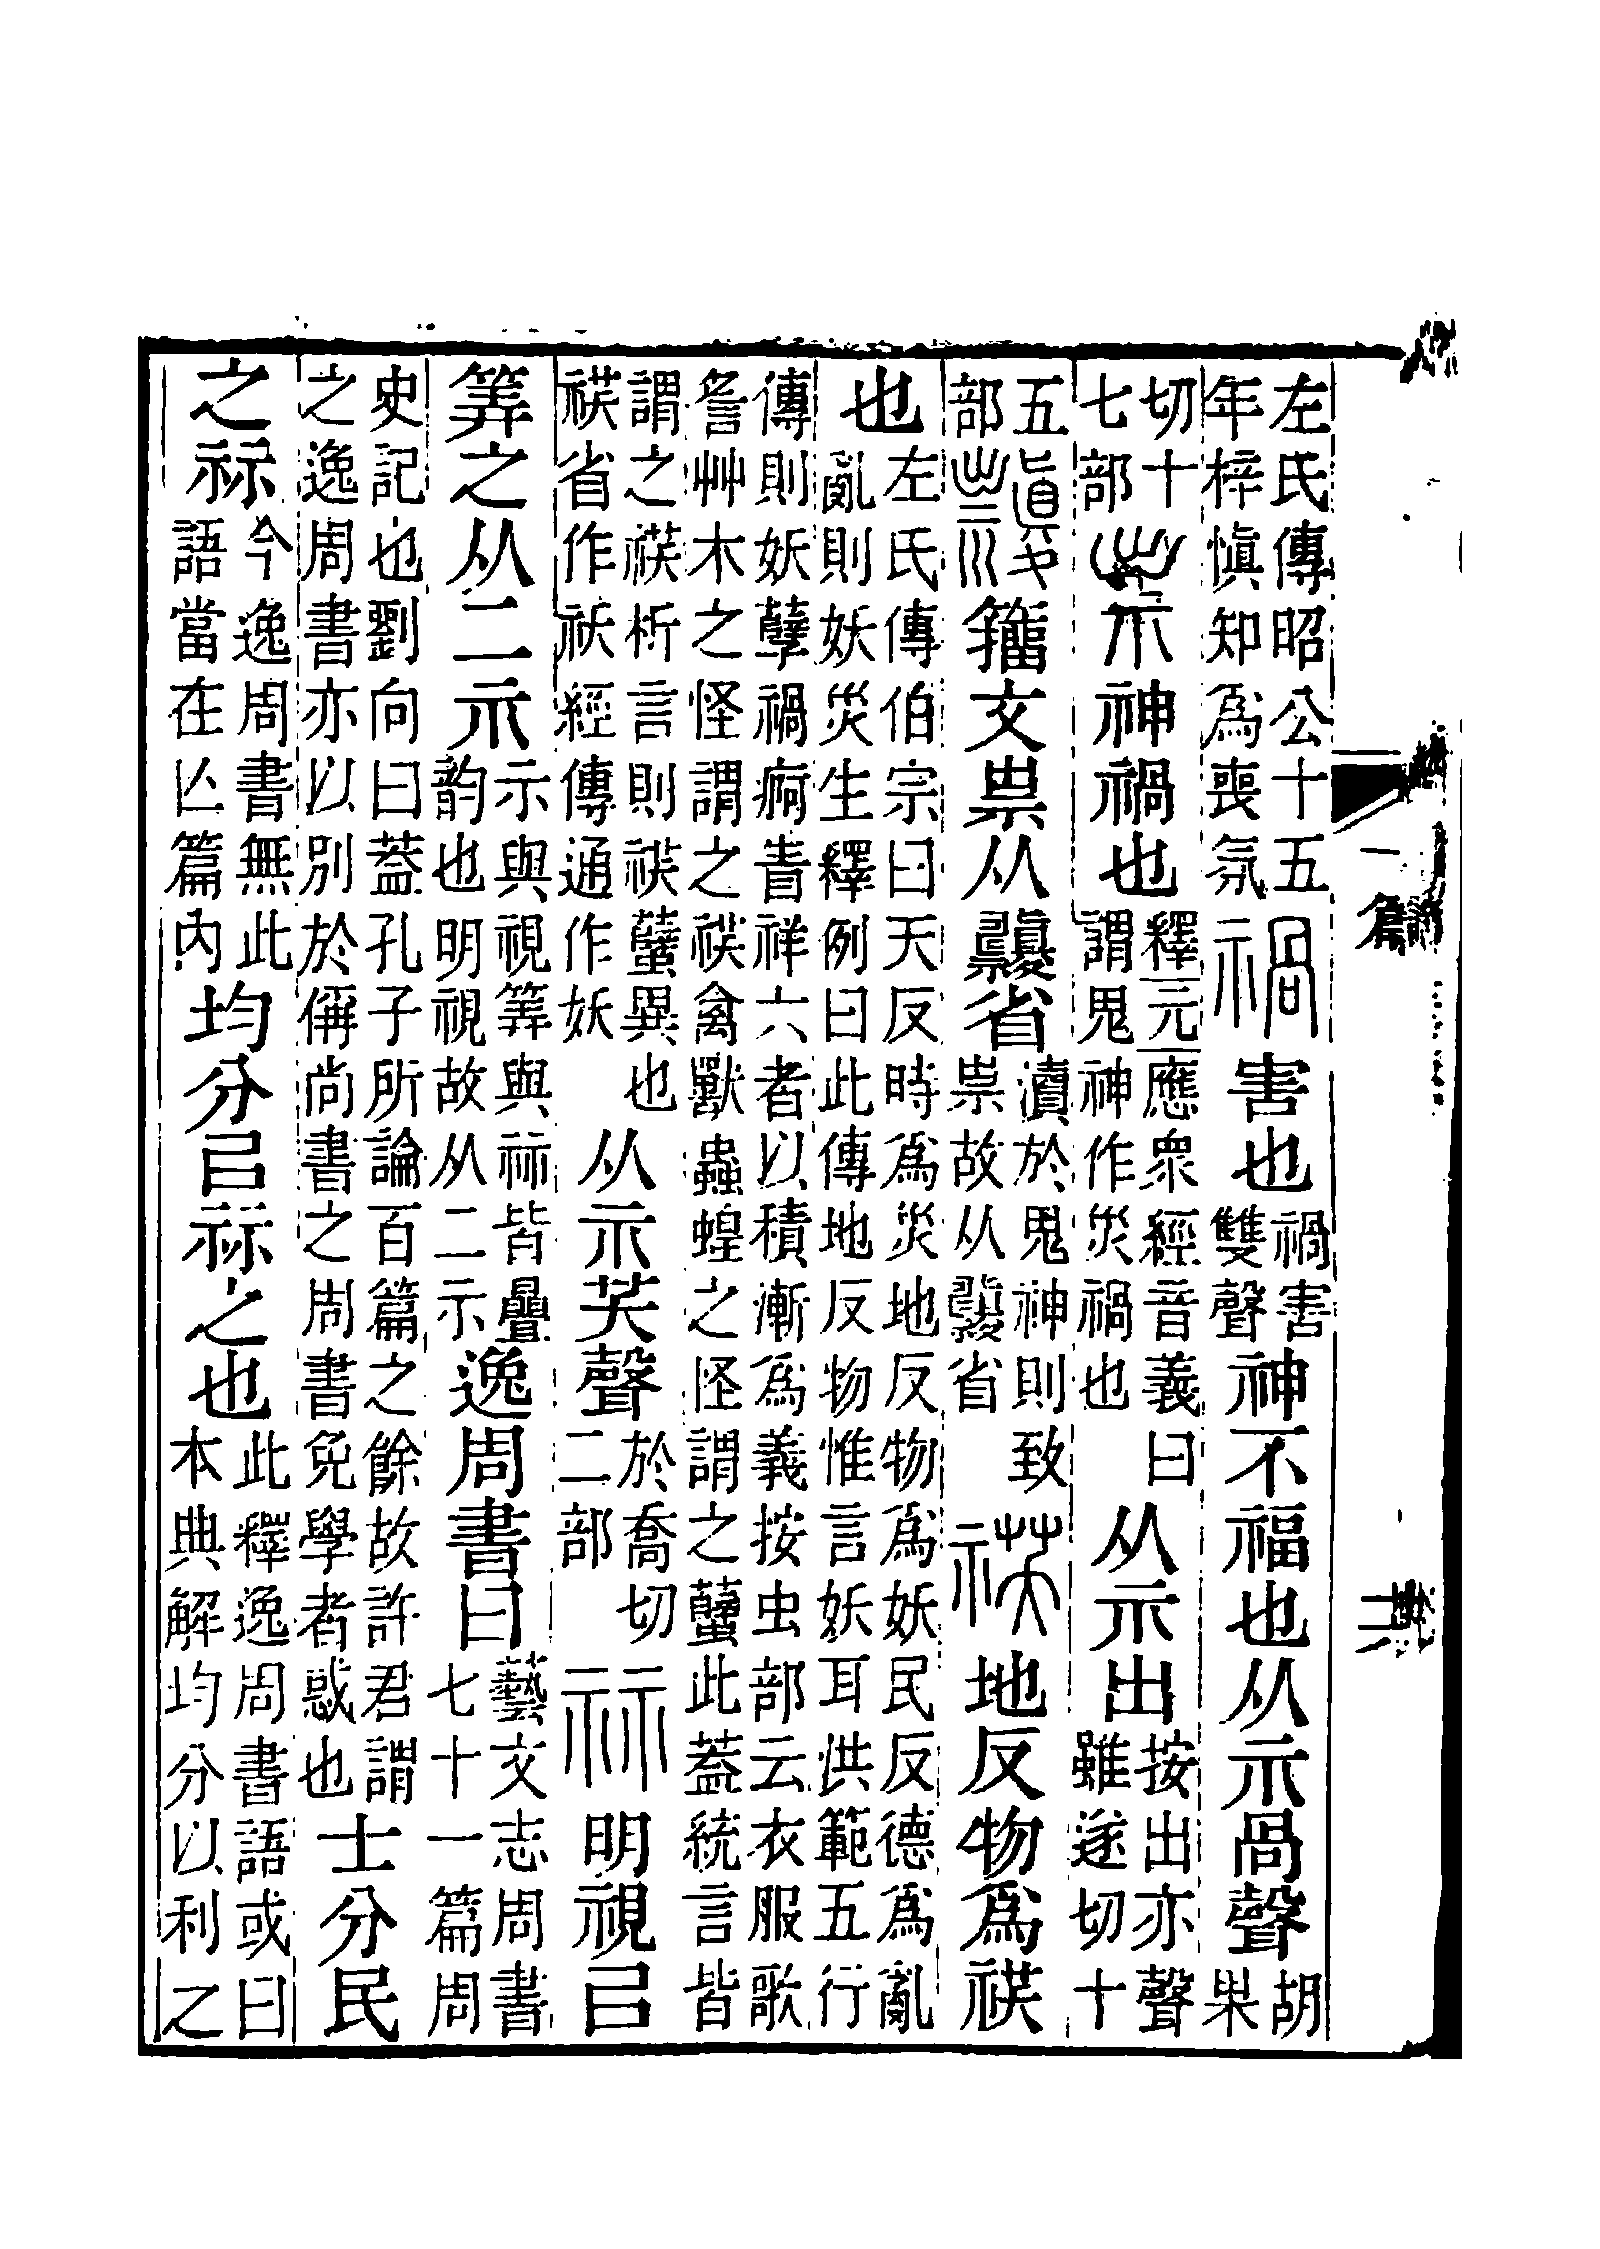 左氏傳昭公十五年梓愼知爲喪氛禍害也禍害雙聲神不福也从示咼聲胡果
切十七部祟神禍也釋元應衆經音義曰謂鬼神作災禍也从示出按出亦聲雖遂切十
五部籒文祟从省瀆於鬼神則致祟故从省䄏地反物爲䄏
也左氏傳伯宗曰天反時爲災地反物爲妖民反德爲亂亂則妖災生釋例曰此傳地反物惟言妖耳洪範五行
傳則妖孼禍痾眚祥六者以積漸爲義按虫部云衣服歌䚻艸木之怪謂之䄏禽獸蟲蝗之怪謂之𧖅此葢統言皆
謂之䄏析言則䄏𧖅異也䄏省作祅經傳通作妖从示芺聲於喬切二部祘明視㠯
筭之从二示示與視筭與祘皆曡韵也明視故从二示逸周書曰藝文志周書七十一篇周
史記也劉向曰葢孔子所論百篇之餘故許君謂之逸周書亦以別於偁尚書之周書免學者惑也士分民
之祘今逸周書無此語當在亾篇內均分㠯祘之也此釋逸周書語或曰本典解均分以利之